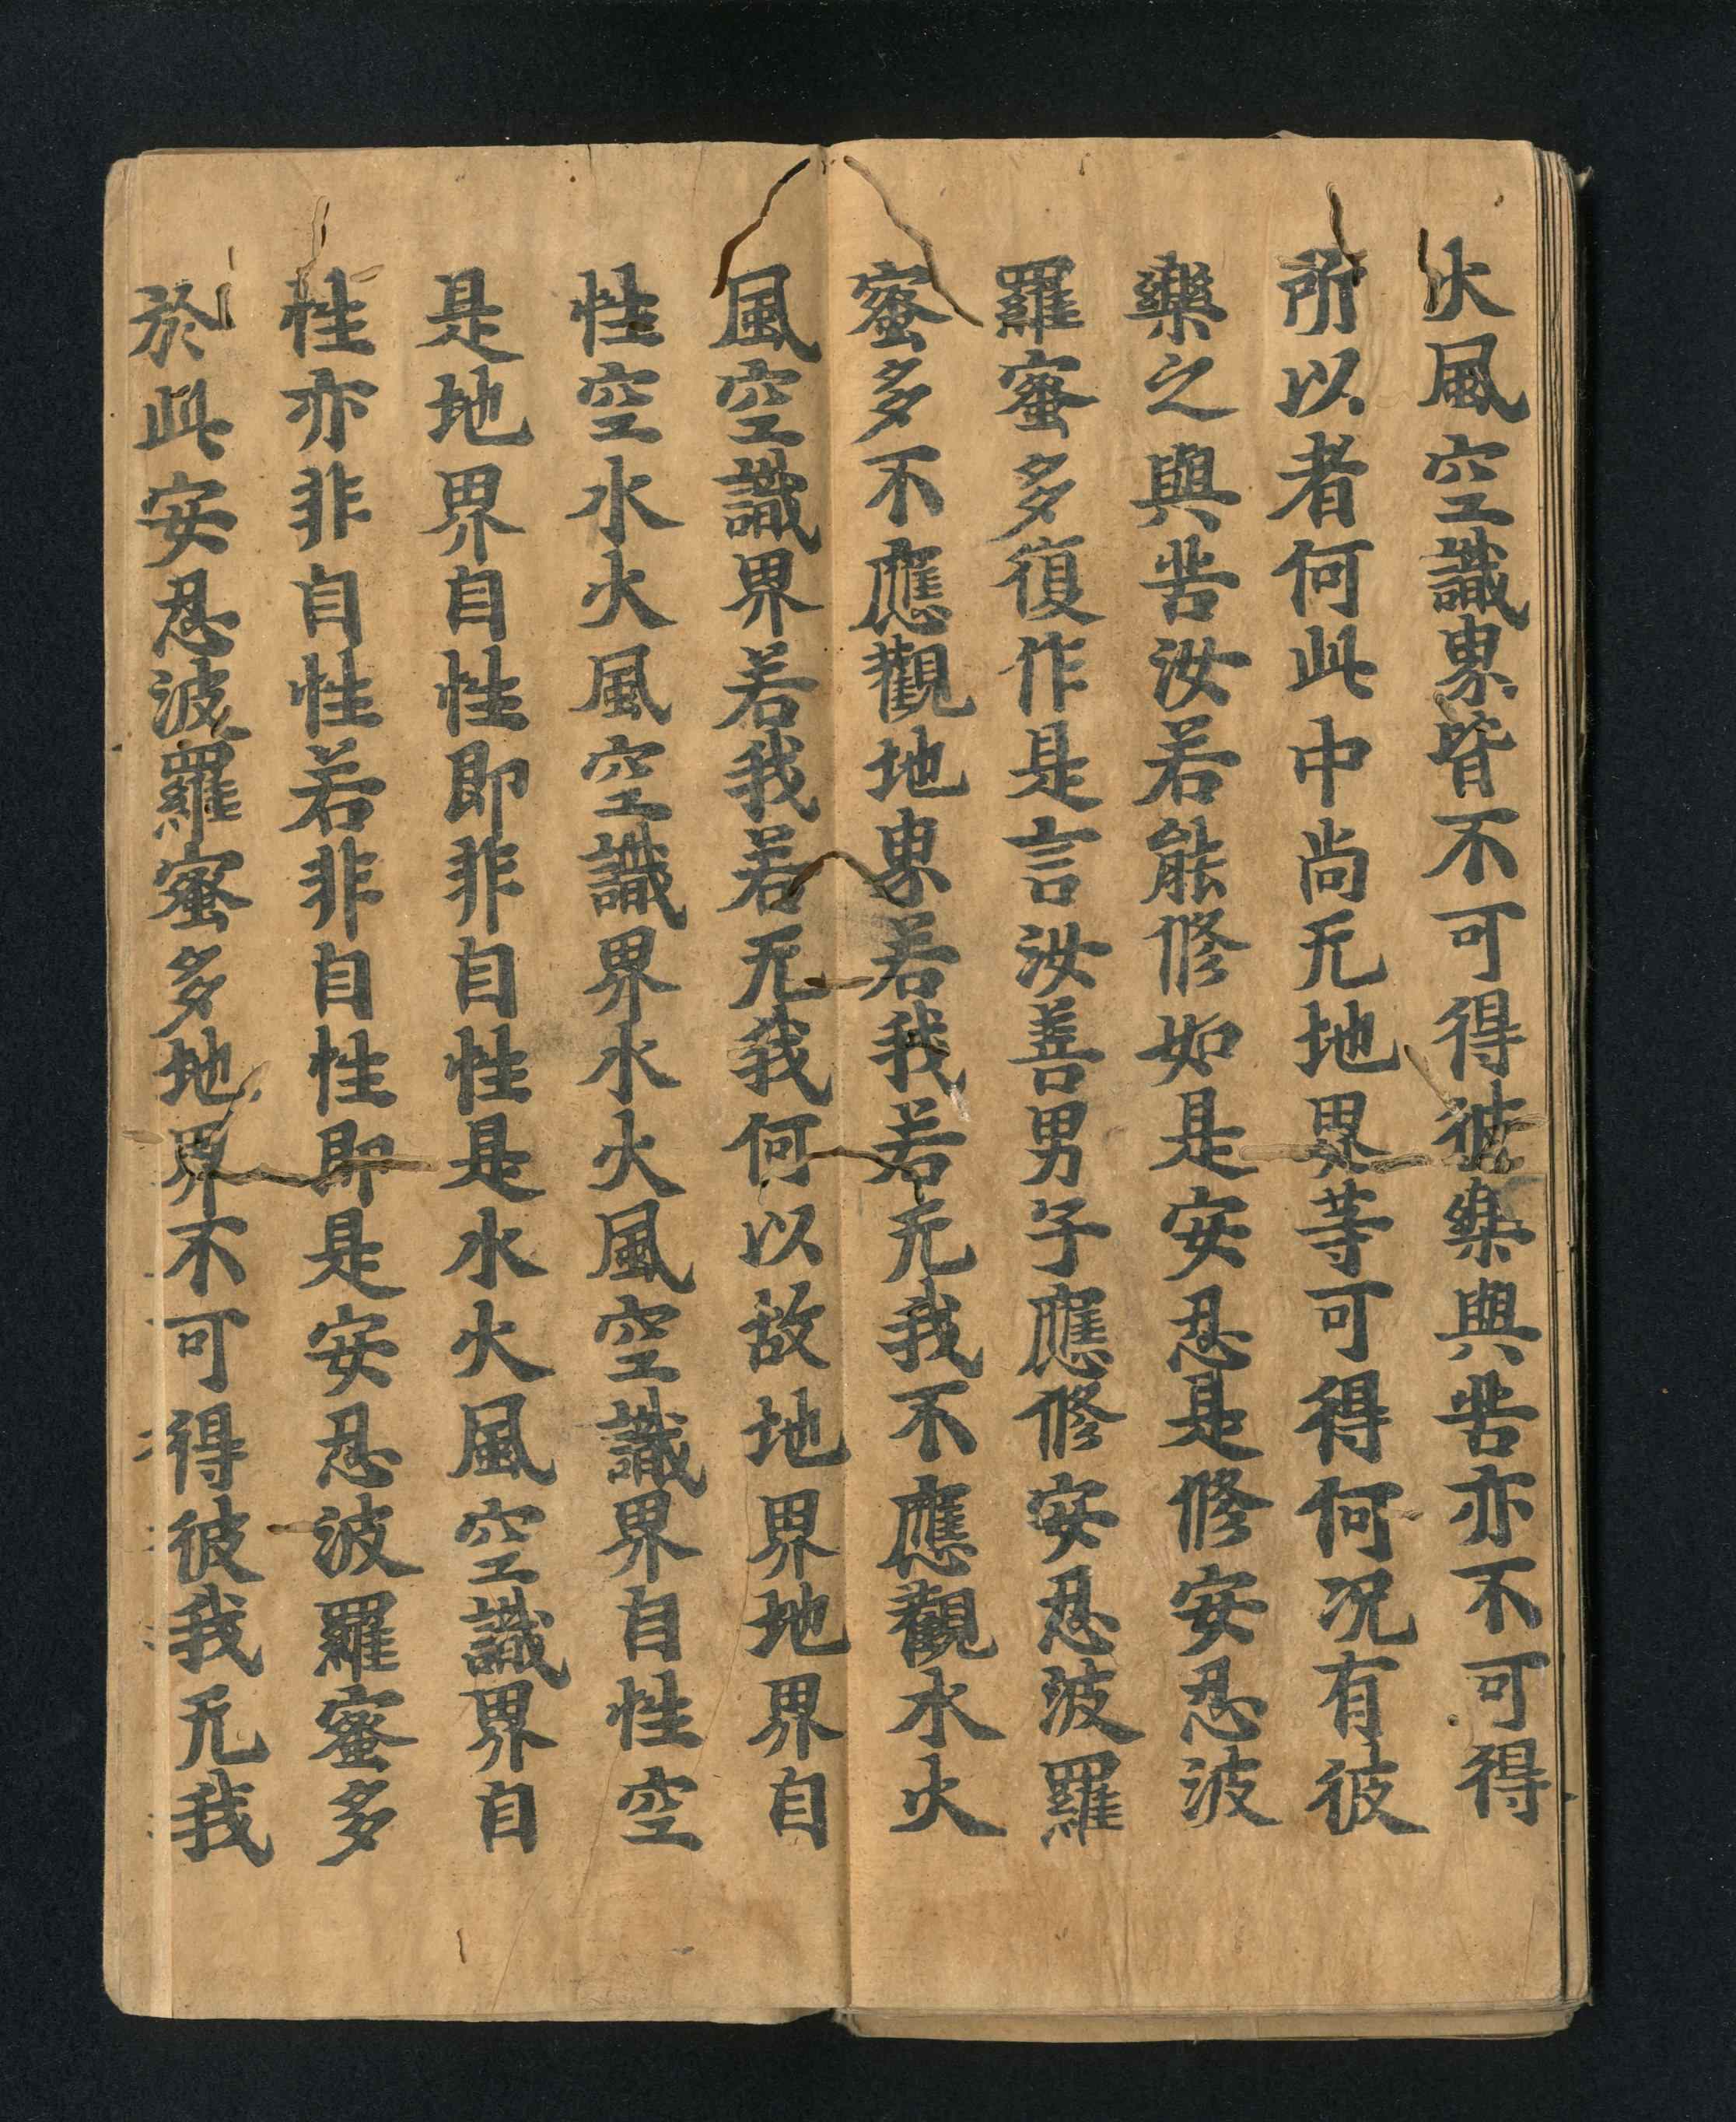 火風空識界皆不可得彼樂與苦亦不可得
所以者何此中尚无地界等可得何況有彼
樂之與苦汝若能修如是安忍是修安忍波
羅蜜多復作是言汝善男子應修安忍波羅
蜜多不應觀地界若我若无我不應觀水火
風空識界若我若无我何以故地界地界自
性空水火風空識界水火風空識界自性空
是地界自性即非自性是水火風空識界自
性亦非自性若非自性即是安忍波羅蜜多
於此安忍波羅蜜多地界不可得彼我无我